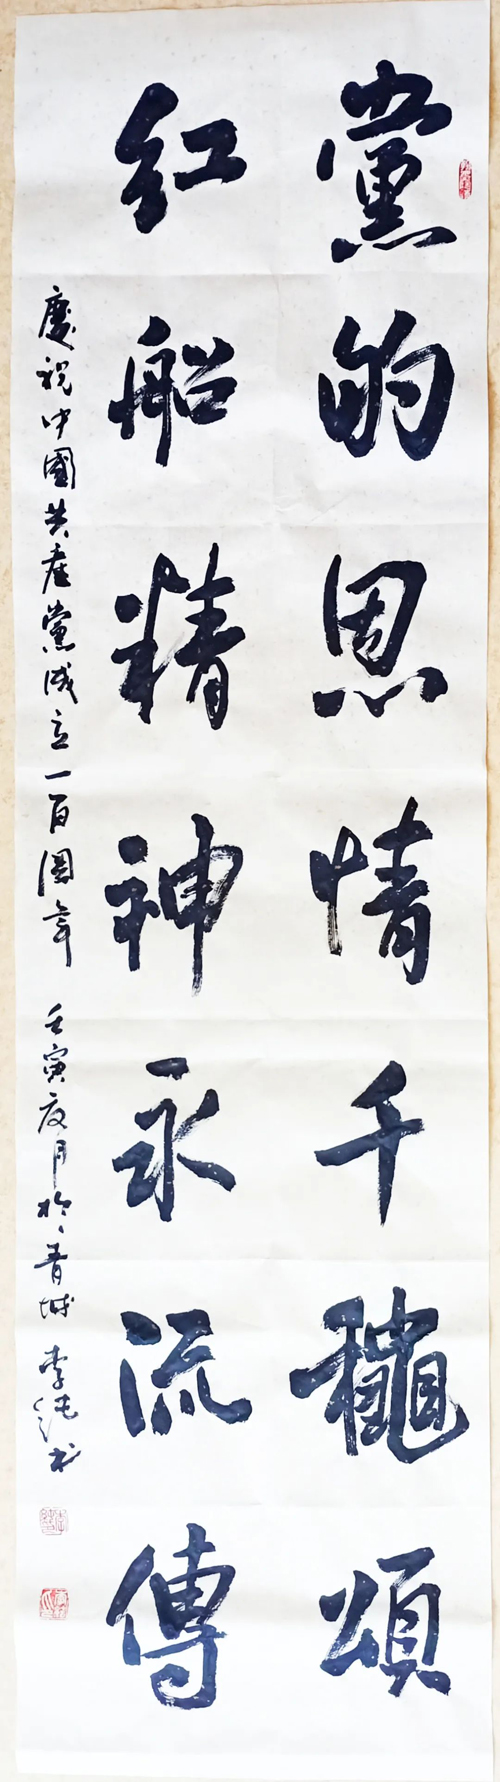 黨的恩情千龝頌
红船精神永流傳
慶祝中國共產黨成立一百周年 壬寅夏月於青城 李纯书